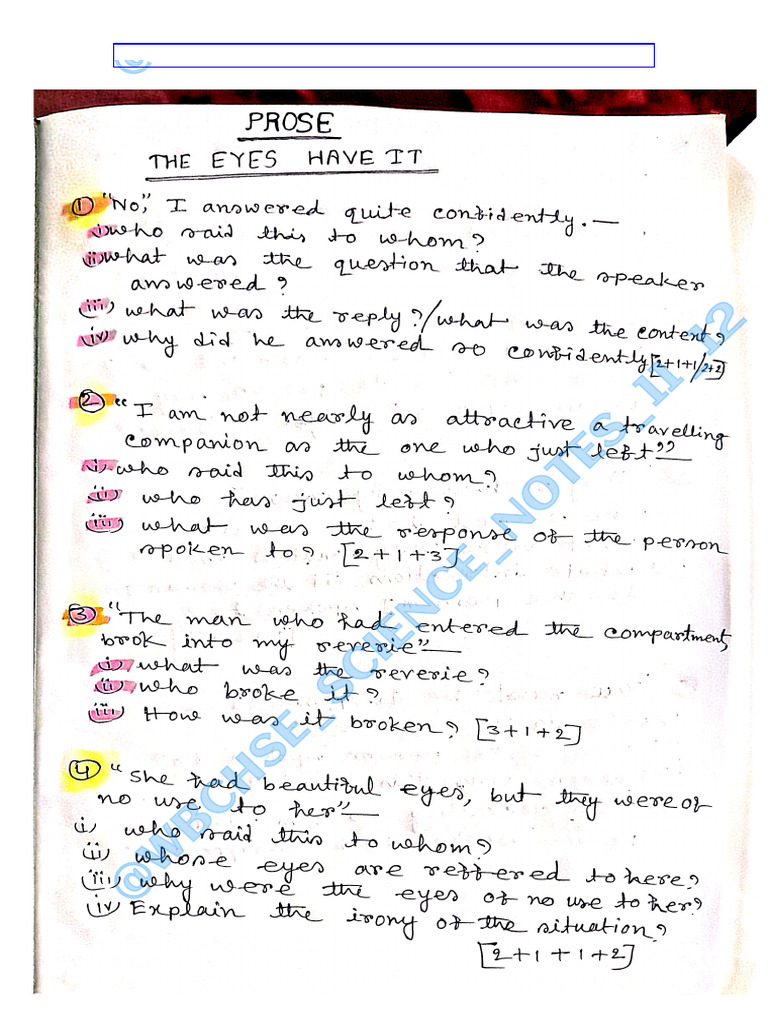 PROSE
THE EYES HAVE IT
① "No", I answered quite confidently. —
i) who said this to whom?
ii) what was the question that the speaker
answered?
iii) what was the reply?/what was the context?
iv) why did he answered so confidently [2+1+1/2+2]
② "I am not nearly as attractive a travelling
companion as the one who just left" —
i) who said this to whom?
ii) who has just left?
iii) what was the response of the person
spoken to? [2+1+3]
③ "The man who had entered the compartment,
brok into my reverie" —
i) what was the reverie?
ii) who broke it?
iii) How was it broken? [3+1+2]
④ "She had beautiful eyes, but they were of
no use to her" —
i) who said this to whom?
ii) whose eyes are reffered to here?
iii) why were the eyes of no use to her?
iv) Explain the irony of the situation?
[2+1+1+2]
@WBCHSE_SCIENCE_NOTES_11_12